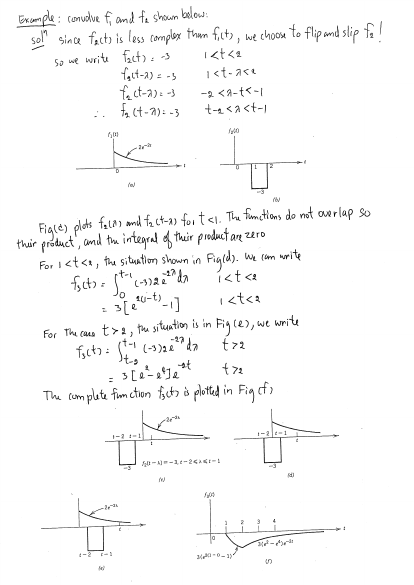 Example: convolve f₁ and f₂ shown below:
solⁿ since f₂(t) is less complex than f₁(t), we choose to flip and slip f₂!
so we write f₂(t) = -3 1<t<2
f₂(t-λ) = -3 1<t-λ<2
f₂(t-λ) = -3 -2<λ-t<-1
∴ f₂(t-λ) = -3 t-2<λ<t-1
f₁(t)
2e⁻²ᵗ
0
t
(a)
f₂(t)
0 1 2
t
-3
(b)
Fig(c) plots f₂(λ) and f₂(t-λ) for t<1. The functions do not overlap so
their product, and the integral of their product are zero
For 1<t<2, the situation shown in Fig(d). We can write
f₃(t) = ∫₀ᵗ⁻¹ (-3)2e⁻²λ dλ 1<t<2
= 3[e²⁽¹⁻ᵗ⁾ -1] 1<t<2
For The case t>2, the situation is in Fig(e), we write
f₃(t) = ∫ₜ₋₂ᵗ⁻¹ (-3)2e⁻²λ dλ t>2
= 3[e²-e⁴]e⁻²ᵗ t>2
The complete function f₃(t) is plotted in Fig(f)
t-2 t-1
2e⁻²λ
t
-3
f₂(t-λ)=-3, t-2≤λ≤t-1
(c)
t-2 t-1
t
-3
(d)
2e⁻²λ
t
t-2 t-1
(e)
f₃(t)
1 2 3 4
t
3(e²-e⁴)e⁻²ᵗ
(f)